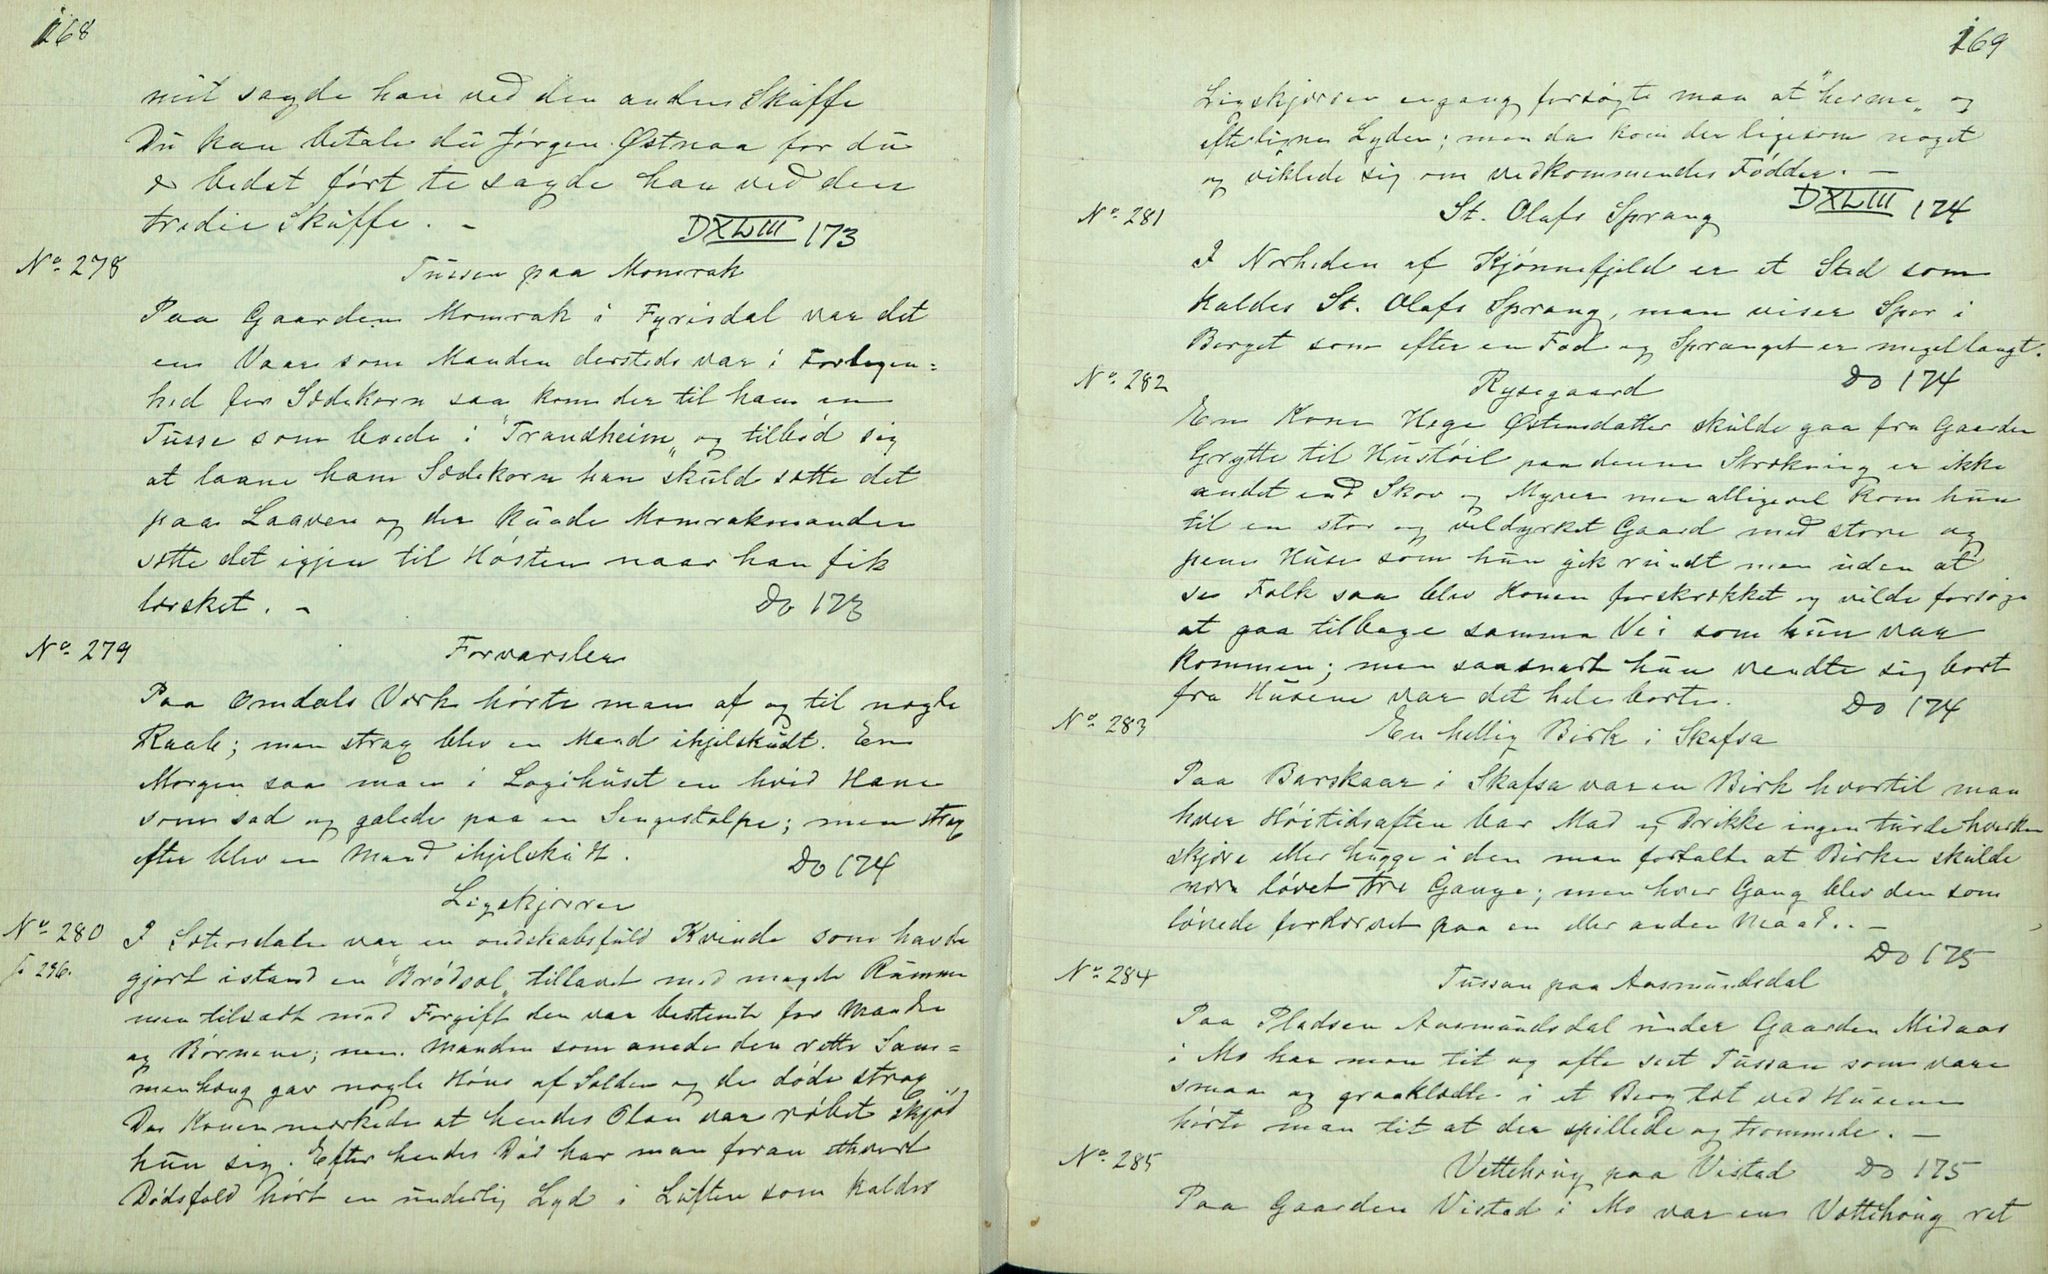 168
mit sagde han ved den anden Skuffe
Du kan betale du Jørgen Østnaa for du
e bedst ført te sagde han ved den
tredie Skuffe. -
DXLIII 173
No 278
Tussen paa Momrak
Paa Gaarden Momrak i Fyrisdal var det
en Vaar som Manden dersteds var i Forlegen=
hed for Sædekorn saa kom der til ham en
Tusse som boede i "Trandheim" og tilbød sig
at laane ham Sædekorn han skuld sette det
paa Laaven og der kunde Momrakmanden
sette det igjen til Høsten naar han fik
tærsket. -
Do 173
No 279
Forvarsler
Paa Omdals Værk hørte man af og til nogle
Raab; men strax blev en Mand ihjelskudt. En
Morgen saa man i Logihuset en hvid Hane
som sad og galede paa en Sengestolpe; men strax
efter blev en Mand ihjelskudt.
Do 174
Ligskjærrer
No 280
I Sætersdalen var en ondskabsfuld Kvinde som havde
gjort istand en "Brødsol" tillavet med meget Rømme
men tilsadt med Forgift den var bestemt for Manden
og Børnene; men Manden som anede den rette Sam=
menhæng gav nogle Høns af Solden og de døde strax
Da Konen mærkede at hendes Plan var røbet skjød
hun sig. Efter hendes Død har man foran ethvert
Dødsfald hørt en underlig Lyd i Luften som kaldes
169
Ligskjærrer engang forsøgte man at "herme" og
efterligne Lyden; men da kom der ligesom noget
og viklede sig om vedkommendes Fødder. -
DXLIII 174
No 281
St. Olafs Sprang
I Nærheden af Kjønnefjeld er et Sted som
kaldes St. Olafs Sprang, man viser Spor i
Berget som efter en Fod og Spranget er meget langt.
Do 174
No 282
Rysegaard
En Kone Hege Østensdatter skulde gaa fra Gaarden
Grytte til Hustøil paa denne Strækning er ikke
andet end Skov og Myrer men alligevel kom hun
til en stor og veldyrket Gaard med store og
pene Huse som hun gik rundt men uden at
se Folk saa blev Konen forskrækket og vilde forsøge
at gaa tilbage samme Vei som hun var
kommen; men saasnart hun vendte sig bort
fra Husene var det hele borte.
Do 174
No 283
En hellig Birk i Skafsa
Paa Barskaar i Skafsa var en Birk hvortil man
hver Høitidsaften bar Mad og Drikke ingen turde hverken
skjære eller hugge i den man fortalte at Birken skulde
være løvet tre Gange; men hver Gang blev den som
løvede fordærvet paa en eller anden Maad. -
Do 175
No 284
Tussan paa Aasmundsdal
Paa Pladsen Aasmundsdal under Gaarden Midaas
i Mo har man tit og ofte seet Tussan som vare
smaa og graaklædte i et Berg tæt ved Husene
hørte man tit at der spillede og trommede. -
No 285
Vettehoug paa Vistad
Do 175
Paa Gaarden Vistad i Mo var en Vettehoug ret